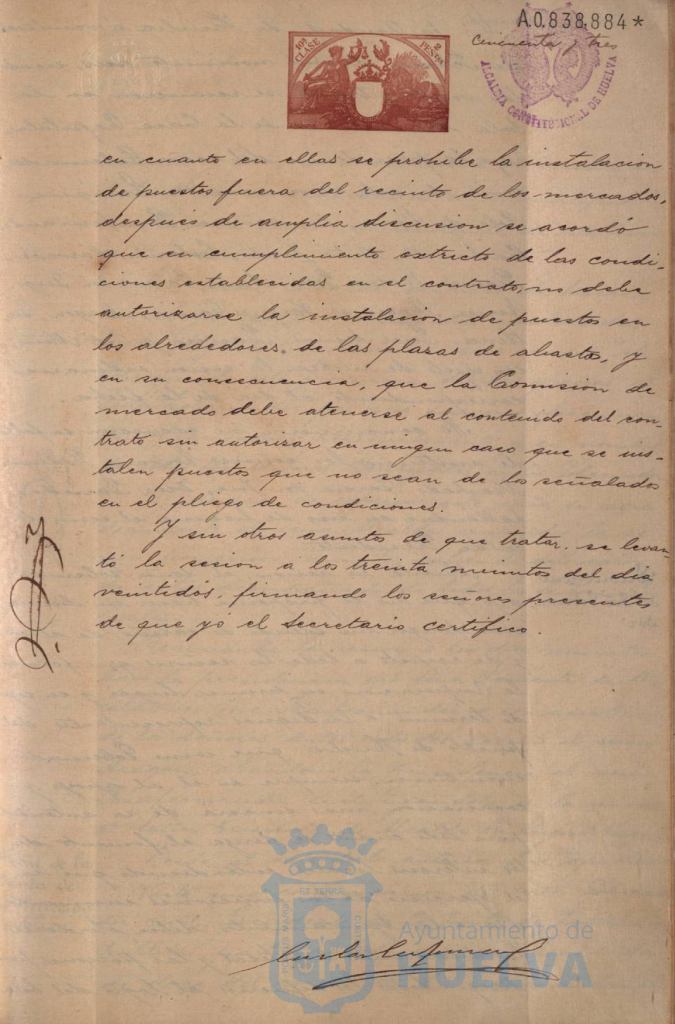 A0,838,884*
Cincuenta y tres
10ª CLASE
2 PESETAS
ALCALDIA CONSTITUCIONAL DE HUELVA
en cuanto en ellas se prohibe la instalacion
de puestos fuera del recinto de los mercados,
despues de amplia discusion se acordó
que en cumplimiento extricto de las condi-
ciones establecidas en el contrato, no debe
autorizarse la instalacion de puestos en
los alrededores de las plazas de abasto, y
en su consecuencia, que la Comision de
mercado debe atenerse al contenido del con-
trato sin autorizar en ningun caso que se ins-
talen puestos que no sean de los señalados
en el pliego de condiciones.
Y sin otros asuntos de que tratar, se levan-
tó la sesion a los treinta minutos del dia
veintidós, firmando los señores presentes
de que yó el Secretario certifico.
Ayuntamiento de
HUELVA